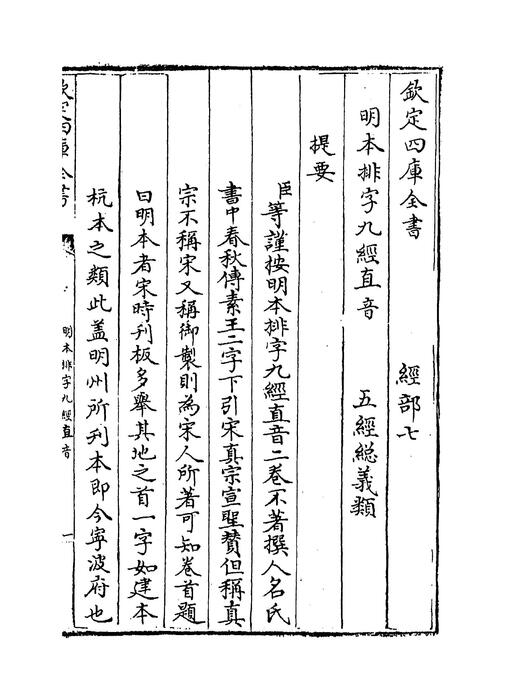 欽定四庫全書 經部七
明本排字九經直音 五經總義類
提要
臣等謹按明本排字九經直音二卷不著撰人名氏
書中春秋傳素王二字下引宋真宗宣聖贊但稱真
宗不稱宋又稱御製則為宋人所著可知卷首題
曰明本者宋時刋板多舉其地之首一字如建本
杭本之類此蓋明州所刋本即今寧波府也
欽定四庫全書
明本排字九經直音
一